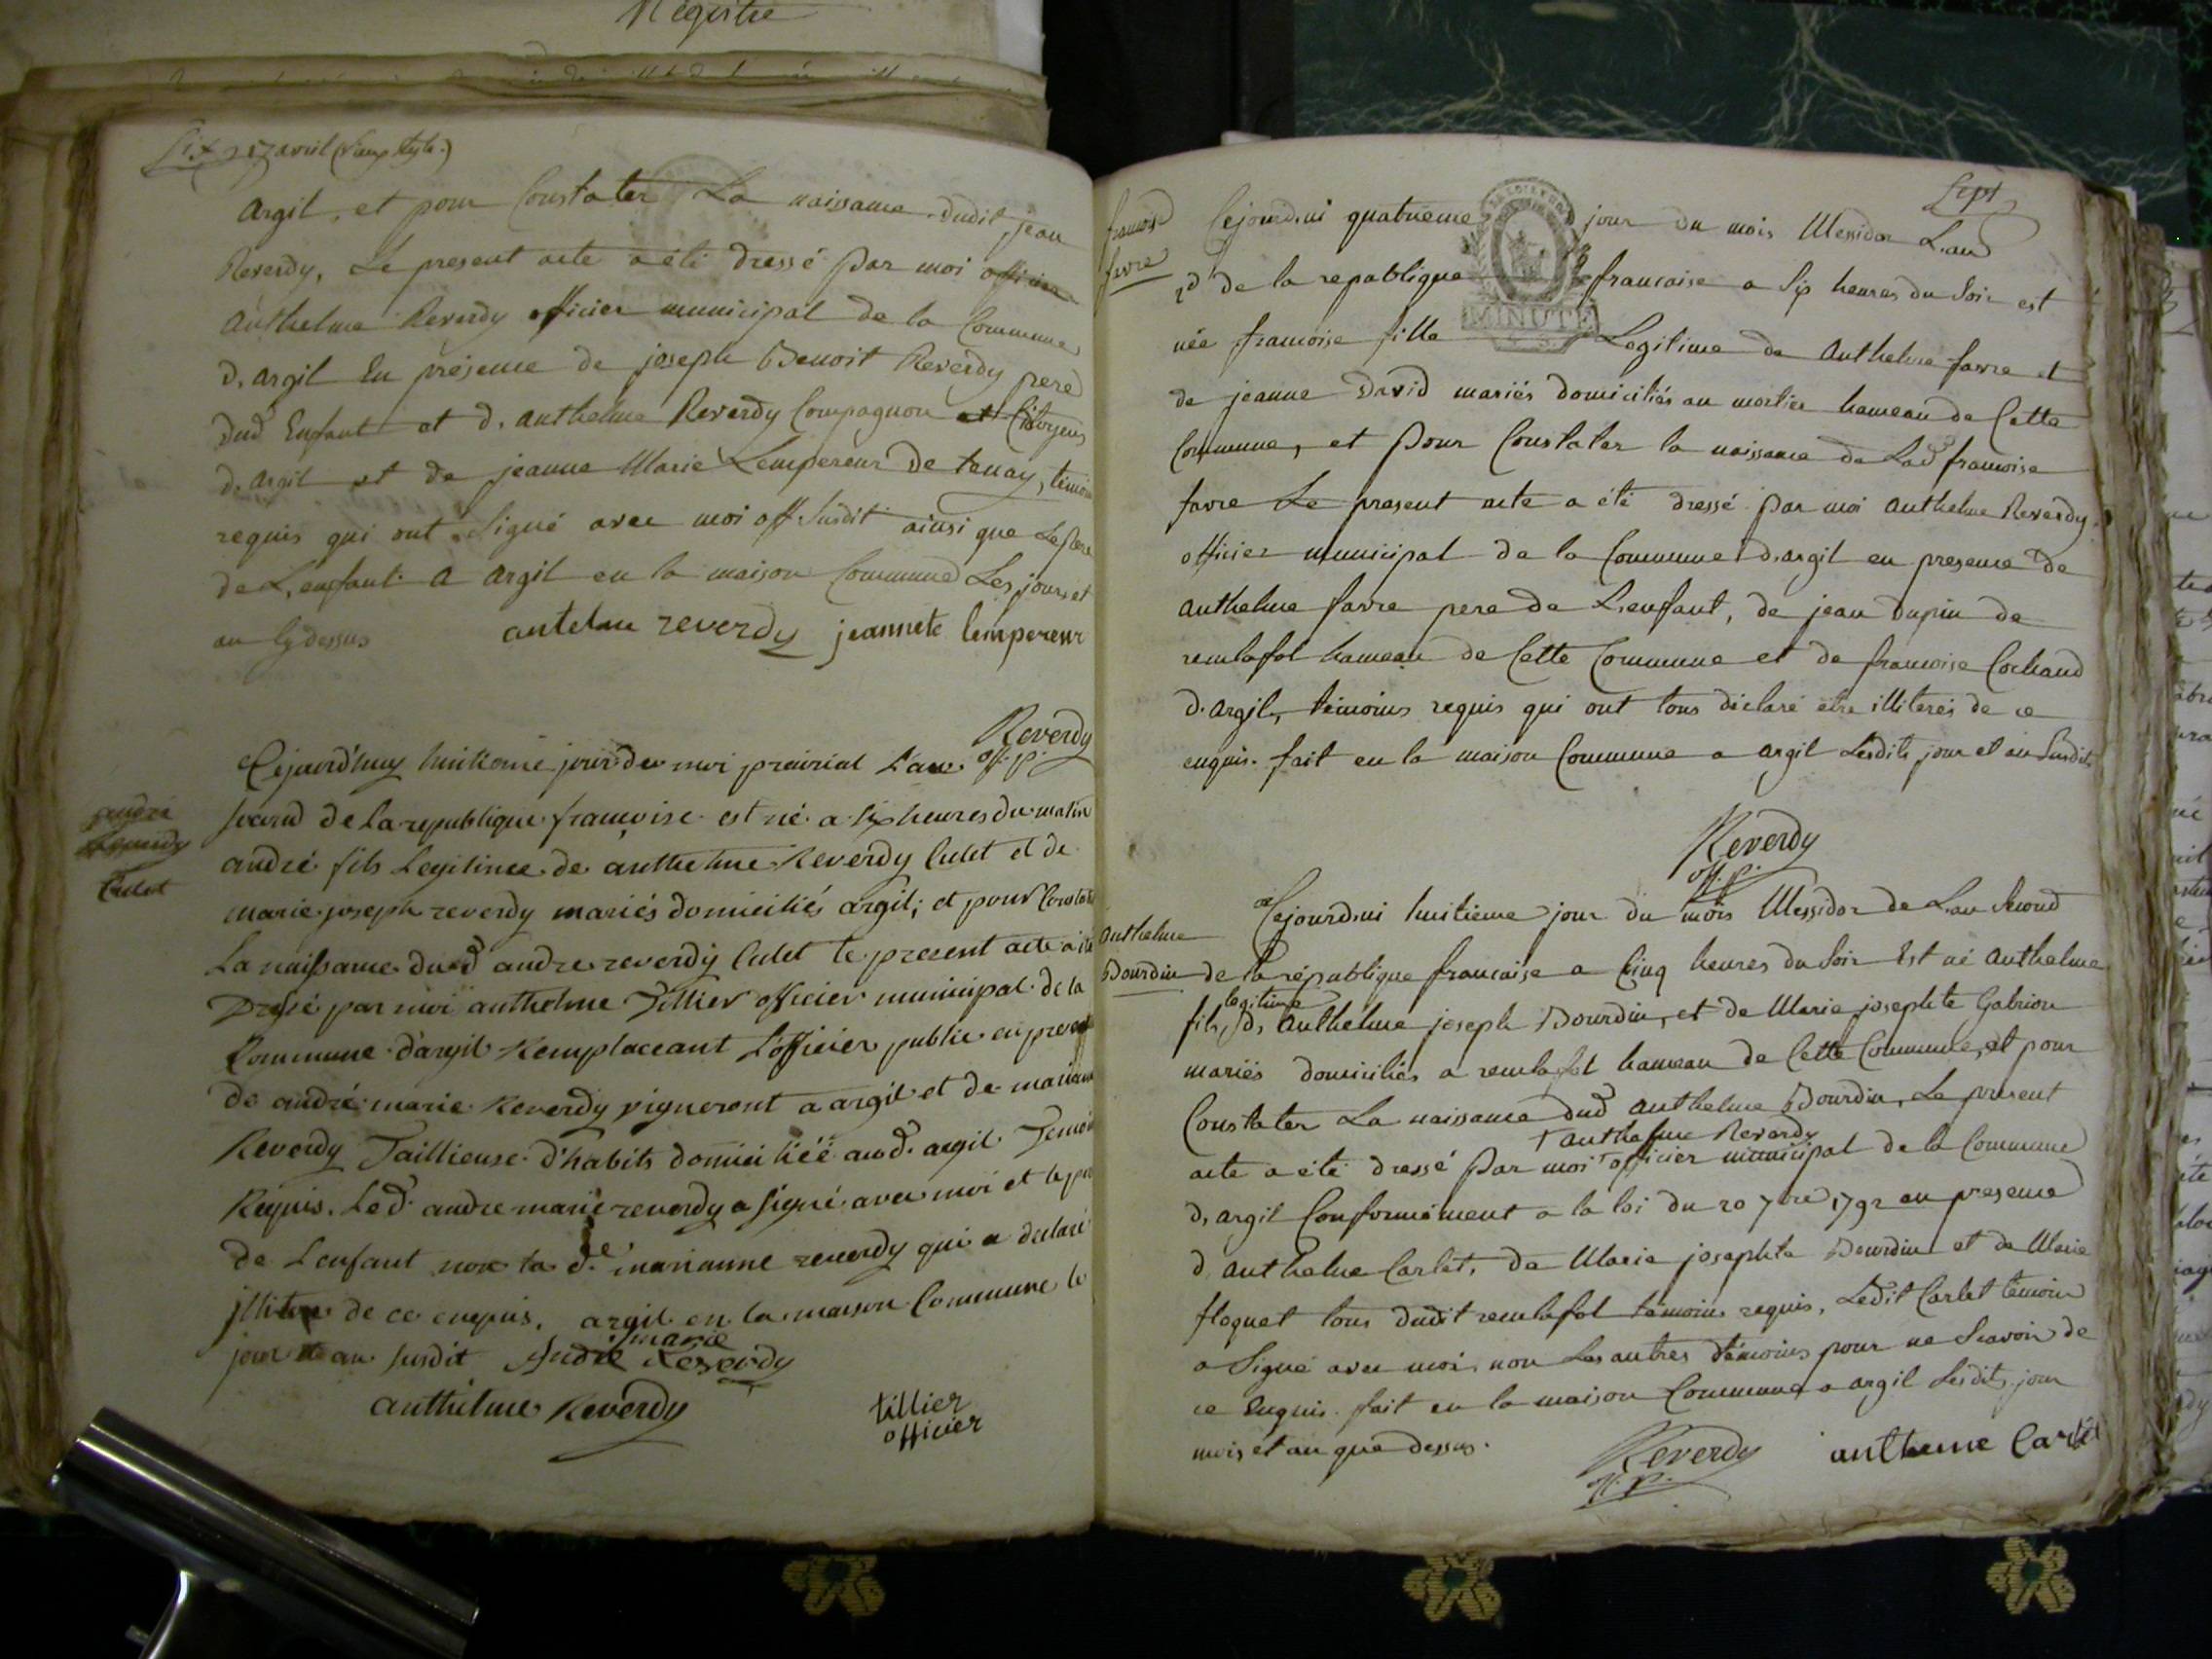 Registre
Six 27 avril (vieux style.)
argil, et pour Constater La naissance dudit jean
Reverdy, Le present acte a été dressé par moi officier
Anthelme Reverdy officier municipal de la Commune
d'argil En présence de joseph Benoit Reverdy pere
dud Enfant et d. anthelme Reverdy Compagnon et Citoyens
d'argil et de jeanne Marie Lempereur de tenay, témoins
requis qui ont signé avec moi off susdit ainsi que Le pere
de L'enfant a argil en la maison Commune Les jours et
an Cy dessus antelme reverdy jeannete lempereur
Reverdy
off. p.
Cejourd'huy huitieme jour du moi prairial L'an
second de La republique françoise est né a six heures du matin
andré
reverdy
Culet
andré fils Legitime de anthelme Reverdy Culet et de
marie joseph reverdy mariés domiciliés argil; et pour Constater
La naissance dud andre reverdy Culet le present acte a été
Dressé par moi anthelme Tillier officier municipal de la
Commune d'argil Remplaceant L'officier public en presence
de andré marie Reverdy vigneront a argil et de marianne
Reverdy Taillieuse d'habits domiciliéé aud. argil Temoins
Requis. Led. andre marie reverdy a signé avec moi et le pere
de L'enfant non la de. marianne reverdy qui a declaré
jlliteré de ce enquis. argil en la maison Commune le
jour et an susdit André marie Reverdy
anthelme Reverdy
tillier
officier
Sept
francoise
favre
Cejourd'ui quatrieme jour du mois Messidor L'an
2d de la republique francaise a Six heures du Soir est
MINUTE
née francoise fille Legitime de Anthelme favre et
de jeanne David mariés domiciliés au mortier hameau de Cette
Commune, et pour Constater la naissance de Lad francoise
favre Le present acte a été dressé par moi Anthelme Reverdy
officier municipal de la Commune d'argil en presence de
Anthelme favre pere de L'enfant, de jean Dupin de
remlafol hameau de Cette Commune et de francoise Cochaud
d'argil, témoins requis qui ont tous déclaré etre illiterés de ce
enquis. fait en la maison Commune a argil Lesdits jour et an Susdits
Reverdy
off. p.
Anthelme
Bourdin
Cejourd'ui huitieme jour du mois Messidor de L'an Second
de la république francaise a Cinq heures du Soir Est né Anthelme
fils legitime d, Anthelme joseph Bourdin, et de Marie josephte Gabrion
mariés domiciliés a remlafol hameau de Cette Commune, et pour
Constater La naissance dud Anthelme Bourdin, Le present
acte a été dressé par moi + anthelme Reverdy officier municipal de la Commune
d'argil Conformément a la loi du 20 7bre 1792 en presence
d, anthelme Carlet, de Marie josephte Bourdin et de Marie
floquet tous dudit remlafol témoins requis, Ledit Carlet témoin
a Signé avec moi, non Les autres témoins pour ne Scavoir de
ce Enquis. fait en la maison Commune a argil Lesdits jour
mois et an que dessus.
Reverdy
off. p.
antheme Carlet